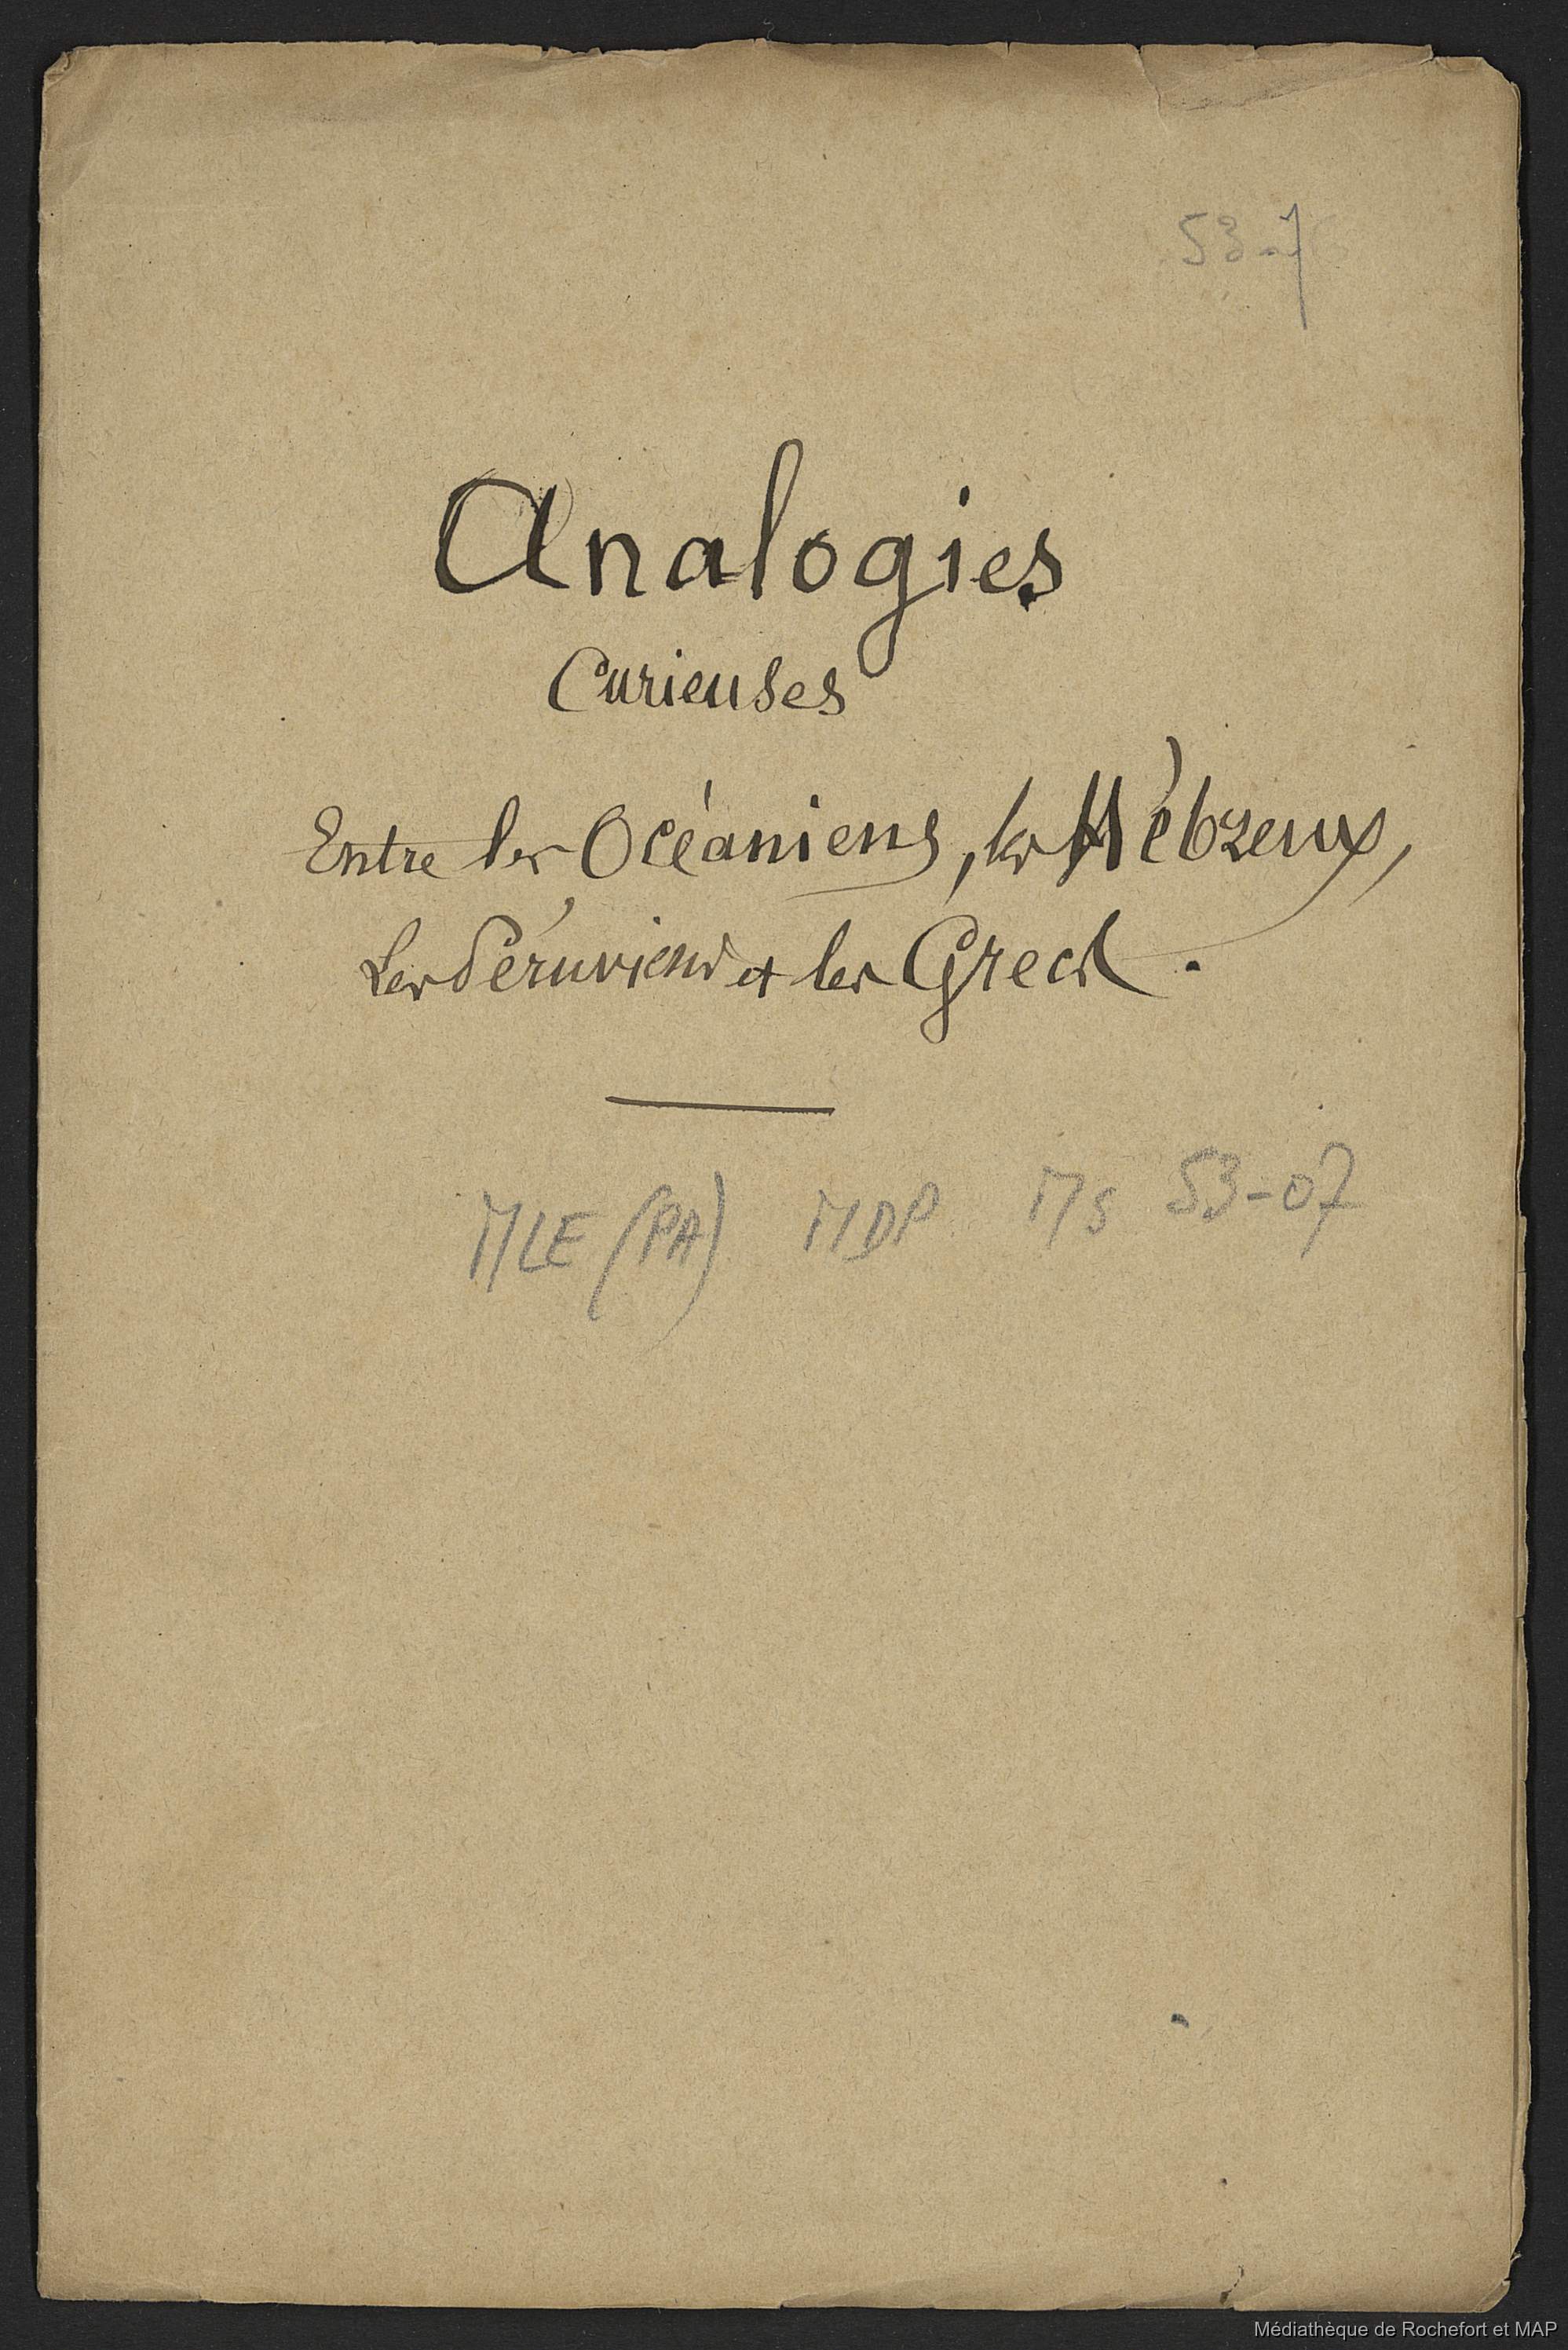 53-7
Analogies
Curieuses
Entre les Océaniens, les Hébreux,
Les Péruviens et les Grecs.
MLE (PA) MDP Ms 53-07
Médiathèque de Rochefort et MAP